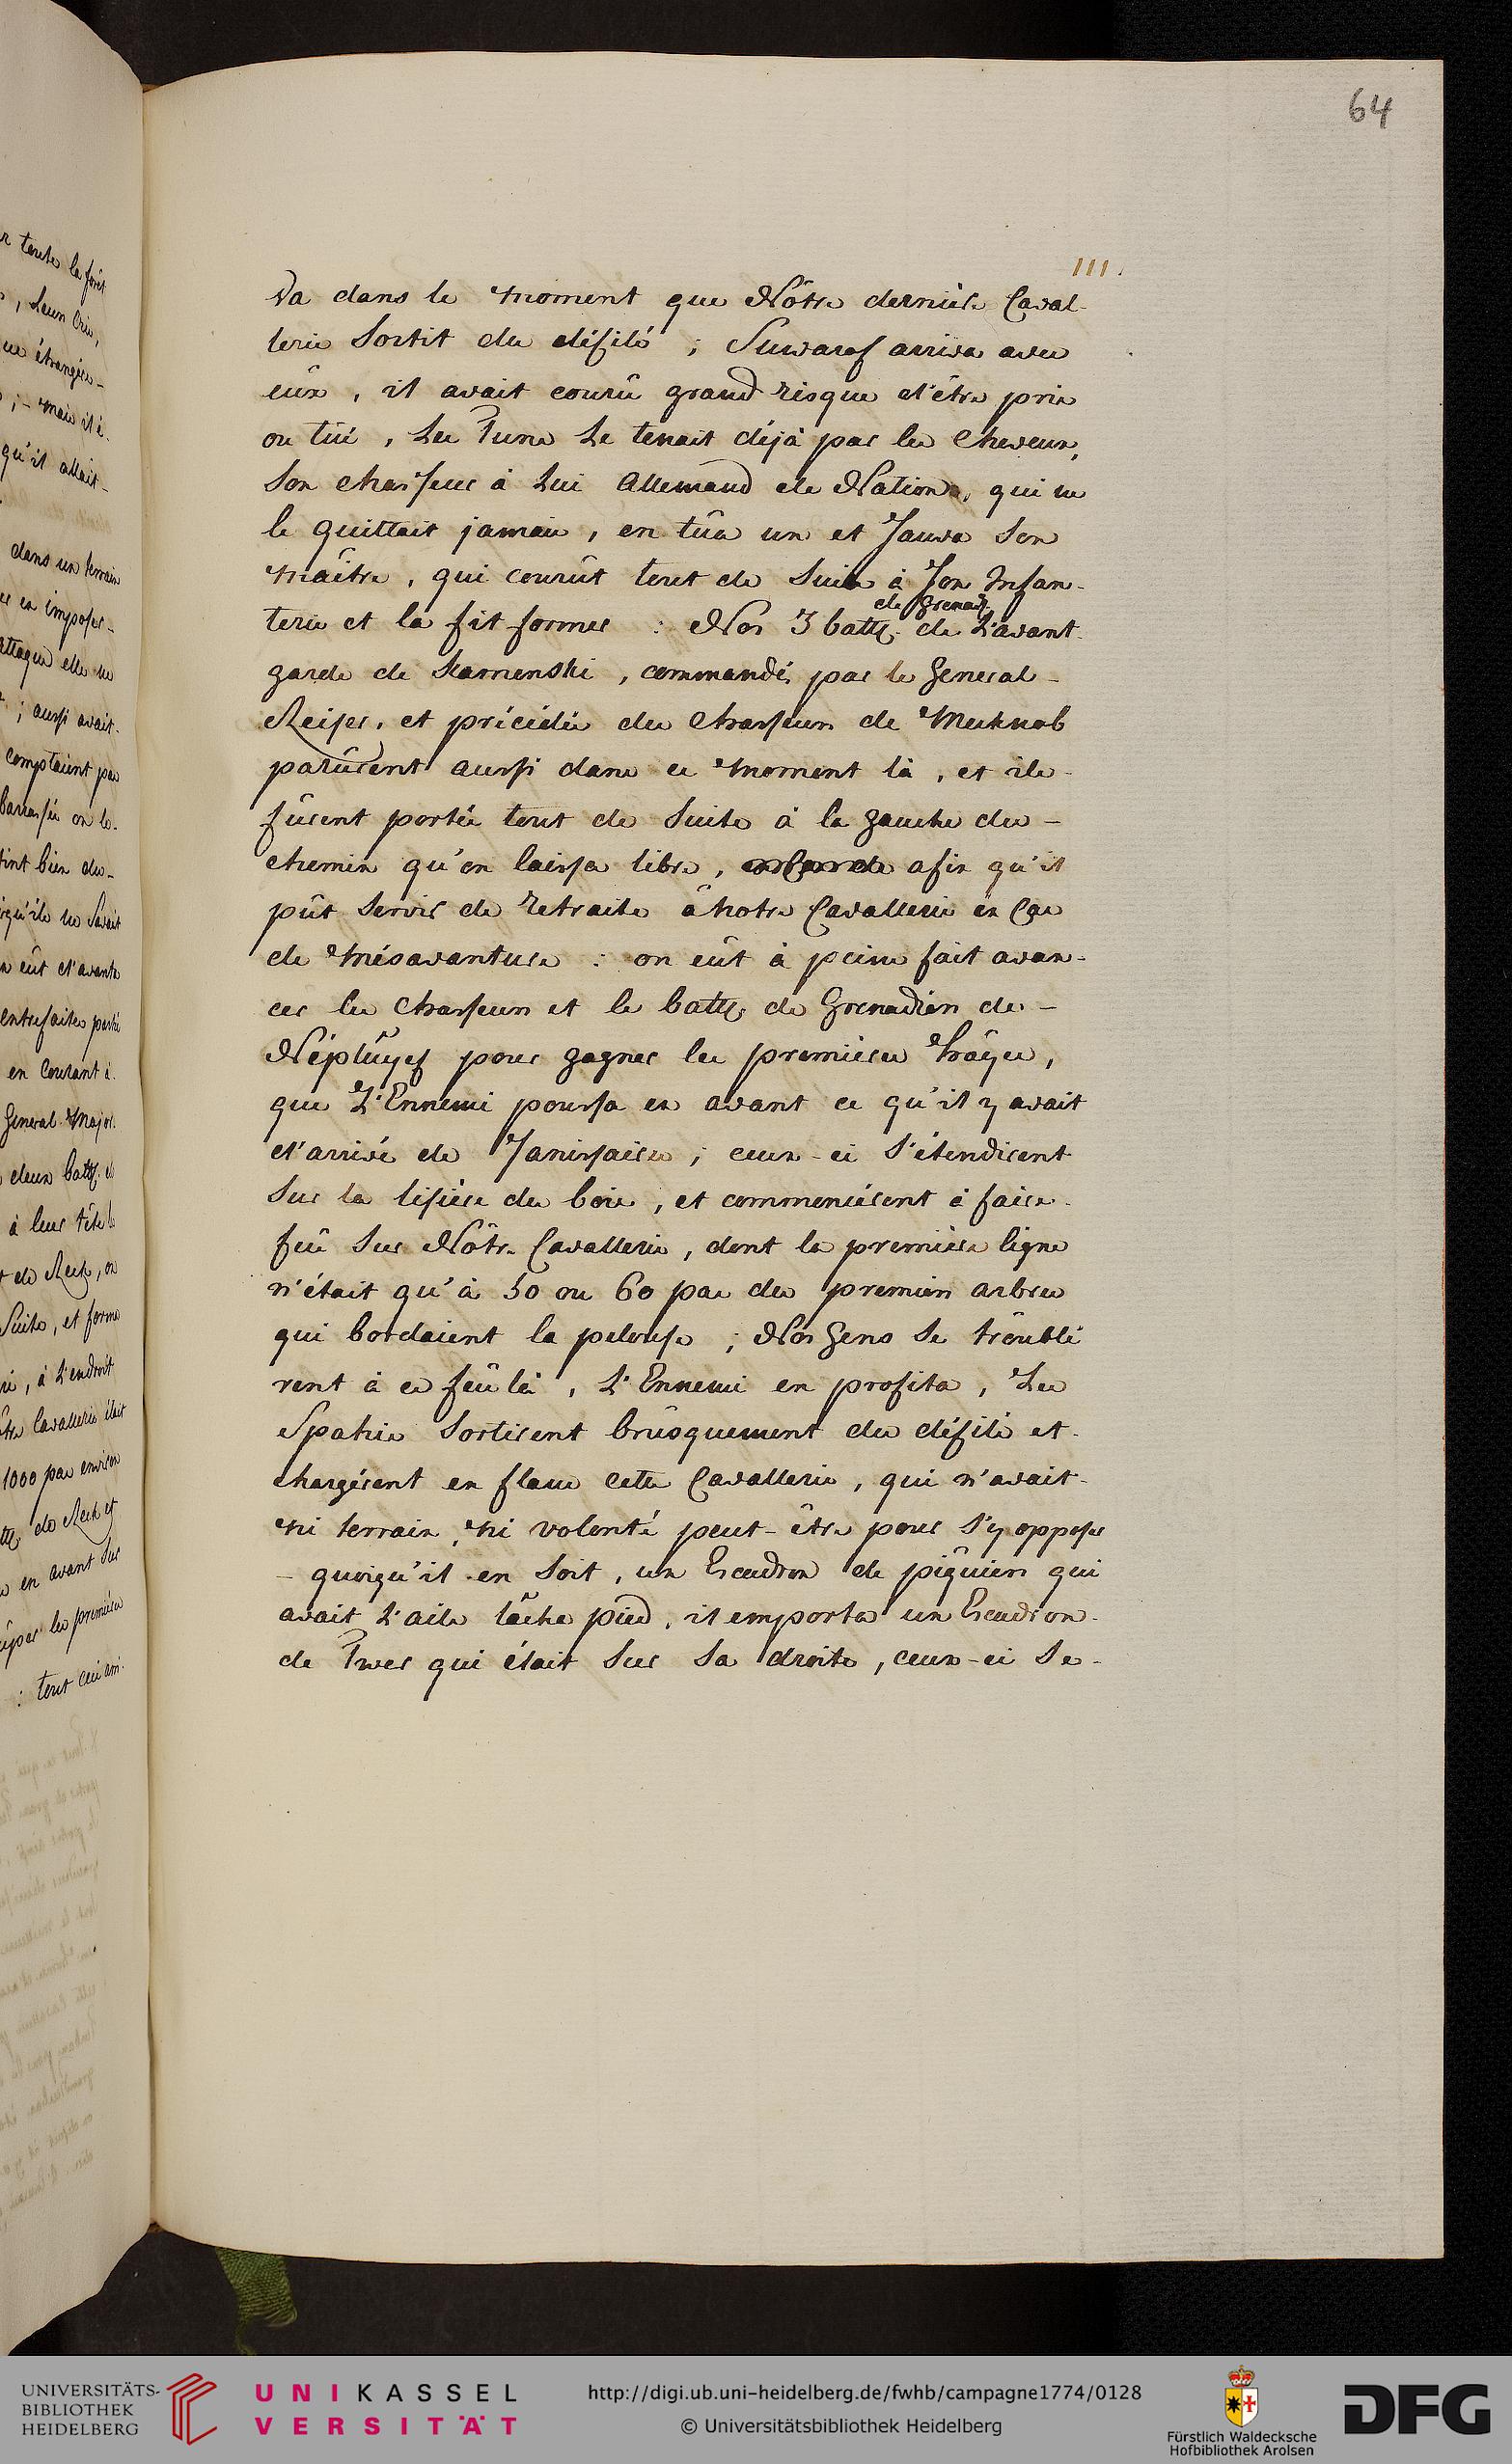 64
111.
va dans le moment que Nôtre derniére Caval-
lerie Sortit du défilé ; Suwarof arriva avec
eûx, il avait courû grand risque d'être pris
ou tüé, Les Turcs Le tenait déjà par les Cheveux,
Son chasseur à Lui Allemand de Nation, qui ne
le quittait jamais, en tûa un et Sauva Son
Maître, qui courût tout de Suite à Son Infan-
terie et la fit former : Nos 3 batt: de L'avant-
de Grenad:
garde de Kamenski, commandés par le General-
Reiser, et précédés des Chasseurs de Meknob
parûrent aussi dans ce Moment là, et ils-
fûrent portés tout de Suite à la gauche du-
chemin qu'on laissa libre, afin qu'il
pût Servir de retraite à notre Cavallerie en Cas
de Mésavanture : on eût à peine fait avan-
cer les Chasseurs et le batt: de Grenadiers de-
Néplûyef pour gagner les premières hâyes,
que L'Ennemi poussa en avant ce qu'il y avait
d'arrivé de Janissaires ; ceux-ci S'étendirent
Sur la lisiére du bois, et commencérent à faire-
feû Sur Nôtre Cavallerie, dont la premiére ligne
n'était qu'à 50 ou 60 pas des premiers arbres
qui bordaient la pelouse ; Nos Gens Se troublé
rent à ce feû là, L'Ennemi en profita, Les
Spahis Sortirent brusquement du défilé et-
chargérent en flanc cette Cavallerie, qui n'avait-
Ni terrain, Ni volonté peut-être pour S'y opposer
- quoiqu'il en Soit, un Escadron de piquiers qui
avait L'aile lâcha pied, il emporta un Escadron-
de Twer qui était Sur Sa droite, ceux-ci Se-
UNIVERSITÄTS-
BIBLIOTHEK
HEIDELBERG
UNIKASSEL
VERSITÄT
http://digi.ub.uni-heidelberg.de/fwhb/campagne1774/0128
© Universitätsbibliothek Heidelberg
Fürstlich Waldecksche
Hofbibliothek Arolsen
DFG